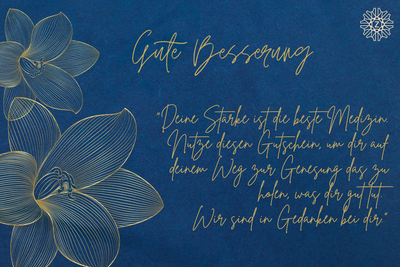 Gute Besserung
"Deine Stärke ist die beste Medizin.
Nutze diesen Gutschein, um dir auf
deinem Weg zur Genesung das zu
holen, was dir gut tut.
Wir sind in Gedanken bei dir."